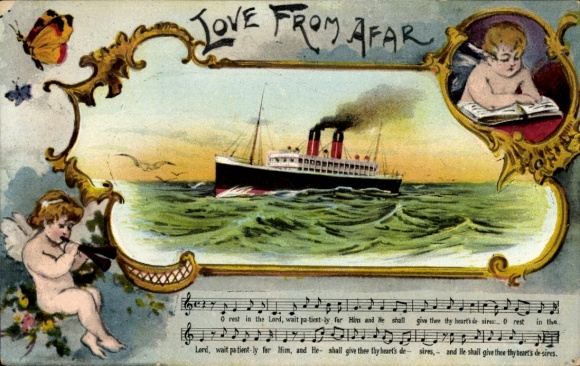 LOVE FROM AFAR
O rest in the Lord, wait pa-tient-ly for Him and He shall give thee thy heart's de-sires... O rest in the
Lord, wait pa-tient-ly for Him, and He- shall give thee thy heart's de- sires,- and He shall give thee thy heart's desires.